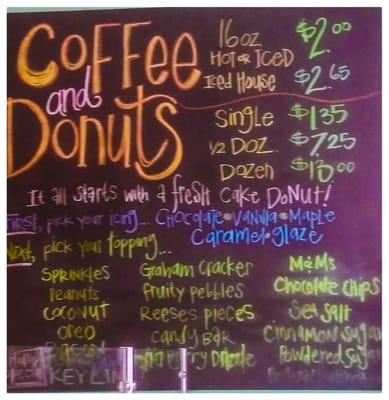 Coffee and Donuts
16oz Hot or Iced $2.00
Iced House $2.65
Single $1.35
1/2 Doz. $7.25
Dozen $13.00
It all starts with a fresh cake Donut!
First, pick your icing... Chocolate • Vanilla • Maple
Caramel • glaze
Next, pick your topping...
Sprinkles
Peanuts
Coconut
Oreo
Key Lim
Graham Cracker
fruity pebbles
Reeses pieces
Candy Bar
M&Ms
Chocolate Chips
Sea Salt
Cinnamon Sugar
Powdered Sugar